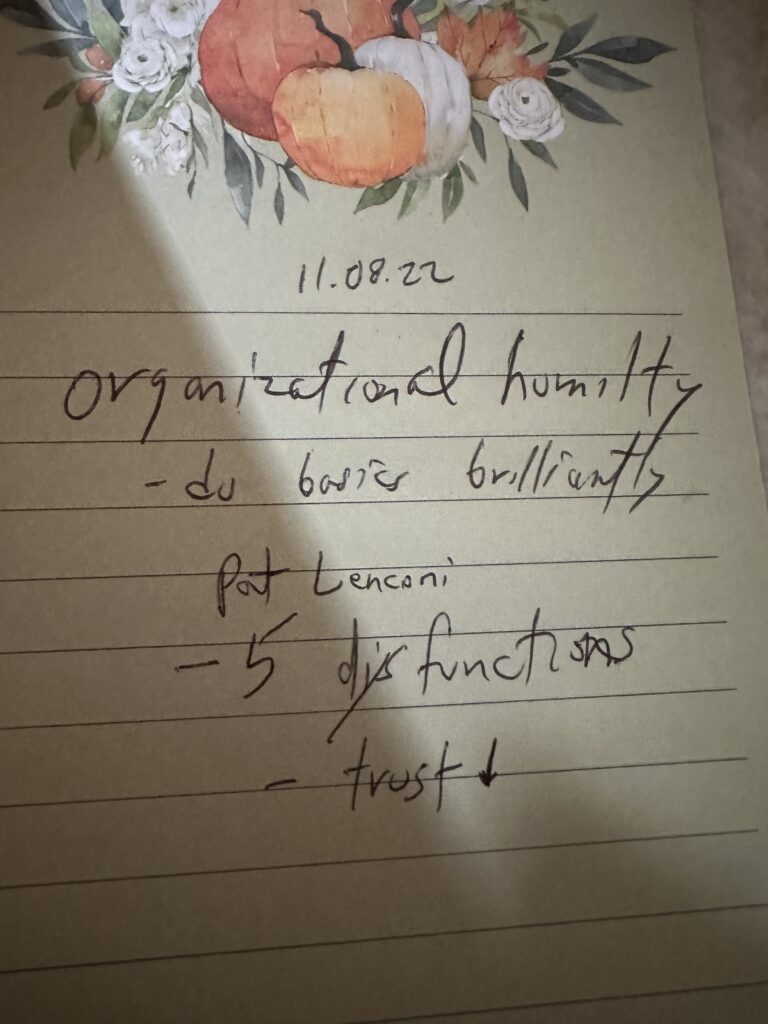 11.08.22
organizational humilty
- do basics brilliantly
Pat Lenconi
- 5 dysfunctions
- trust ↓